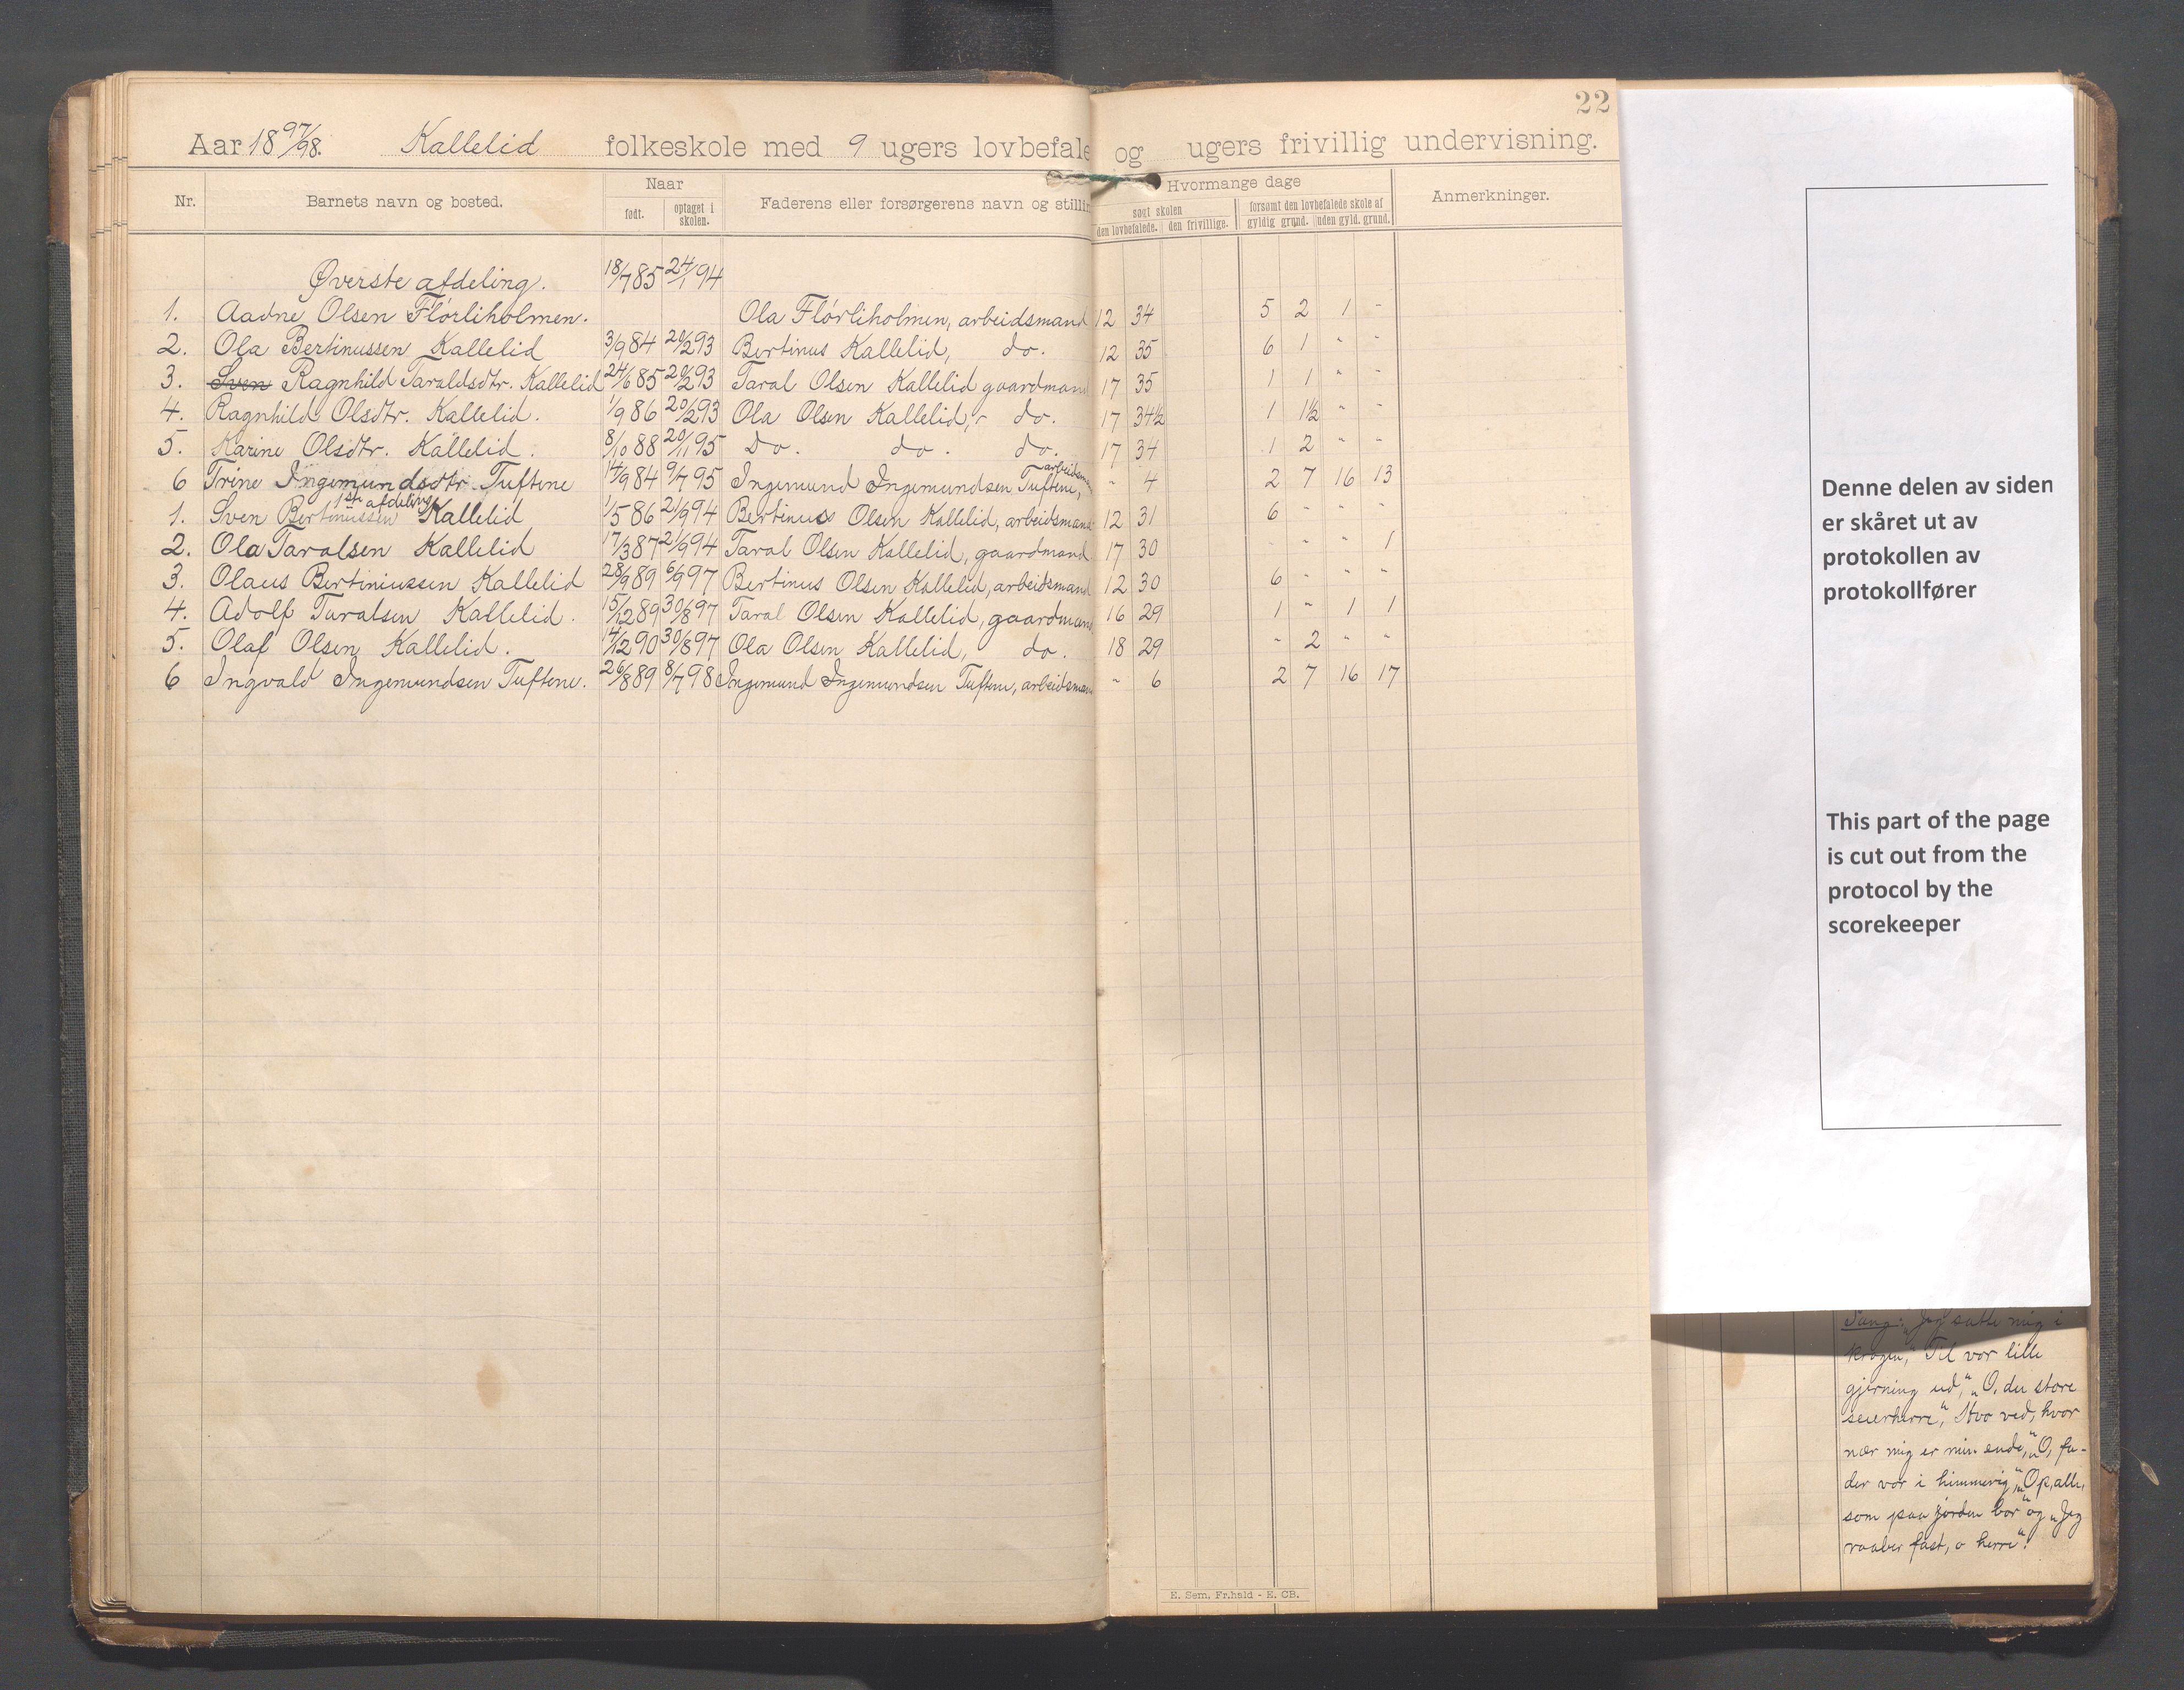 22
Aar 18 97/98. Kallelid folkeskole med 9 ugers lovbefale og ugers frivillig undervisning.
Nr. Barnets navn og bosted. Naar Faderens eller forsørgerens navn og stillin Hvormange dage Anmerkninger.
født. optaget i skolen. søgt skolen forsømt den lovbefalede skole af
den lovbefalede. den frivillige. gyldig grund. uden gyld. grund.
Øverste afdeling. 18/7 85 24/1 94
1. Aadne Olsen Flörliholmen. Ola Flörliholmen, arbeidsmand 12 34 5 2 1 -
2. Ola Bertinussen Kallelid 3/9 84 20/2 93 Bertinus Kallelid, do. 12 35 6 1 " "
3. Sven Ragnhild Taraldsdtr. Kallelid 24/6 85 20/2 93 Taral Olsen Kallelid gaardmand 17 35 1 1 " "
4. Ragnhild Olsdtr. Kallelid. 1/9 86 20/2 93 Ola Olsen Kallelid, do. 17 34½ 1 1½ " "
5. Karine Olsdtr. Kallelid. 8/10 88 20/11 95 Do. do. do. 17 34 1 2 " "
6 Trine Ingemundsdtr. Tuftene 14/9 84 9/7 95 Ingemund Ingemundsen Tuftene, arbeidsman " 4 2 7 16 13
1ste afdeling
1. Sven Bertinussen Kallelid 1/5 86 21/9 94 Bertinus Olsen Kallelid, arbeidsmand 12 31 6 " " "
2. Ola Taralsen Kallelid 17/3 87 21/9 94 Taral Olsen Kallelid, gaardmand 17 30 " " " 1
3. Olaus Bertiniussen Kallelid 28/9 89 6/9 97 Bertinus Olsen Kallelid, arbeidsmand 12 30 6 " " "
4. Adolf Taralsen Kallelid. 15/12 89 30/8 97 Taral Olsen Kallelid, gaardmand 16 29 1 " 1 1
5. Olaf Olsen Kallelid. 14/12 90 30/8 97 Ola Olsen Kallelid, do. 18 29 " 2 " "
6 Ingvald Ingemundsen Tuftene. 26/8 89 8/7 98 Ingemund Ingemundsen Tuftene, arbeidsman " 6 2 7 16 17
E. Sem, Fr.hald - E. CB.
Denne delen av siden
er skåret ut av
protokollen av
protokollfører
This part of the page
is cut out from the
protocol by the
scorekeeper
Sang: „Jeg satte mig i
krogen," Til vor lille
gjerning ud," „O, du store
seierherre," Hvo ved, hvor
nær mig er min ende," „O, fa-
der vor i himmerig," „Op, alle,
som paa jorden bor" og „Jeg
raaber fast, o herre".